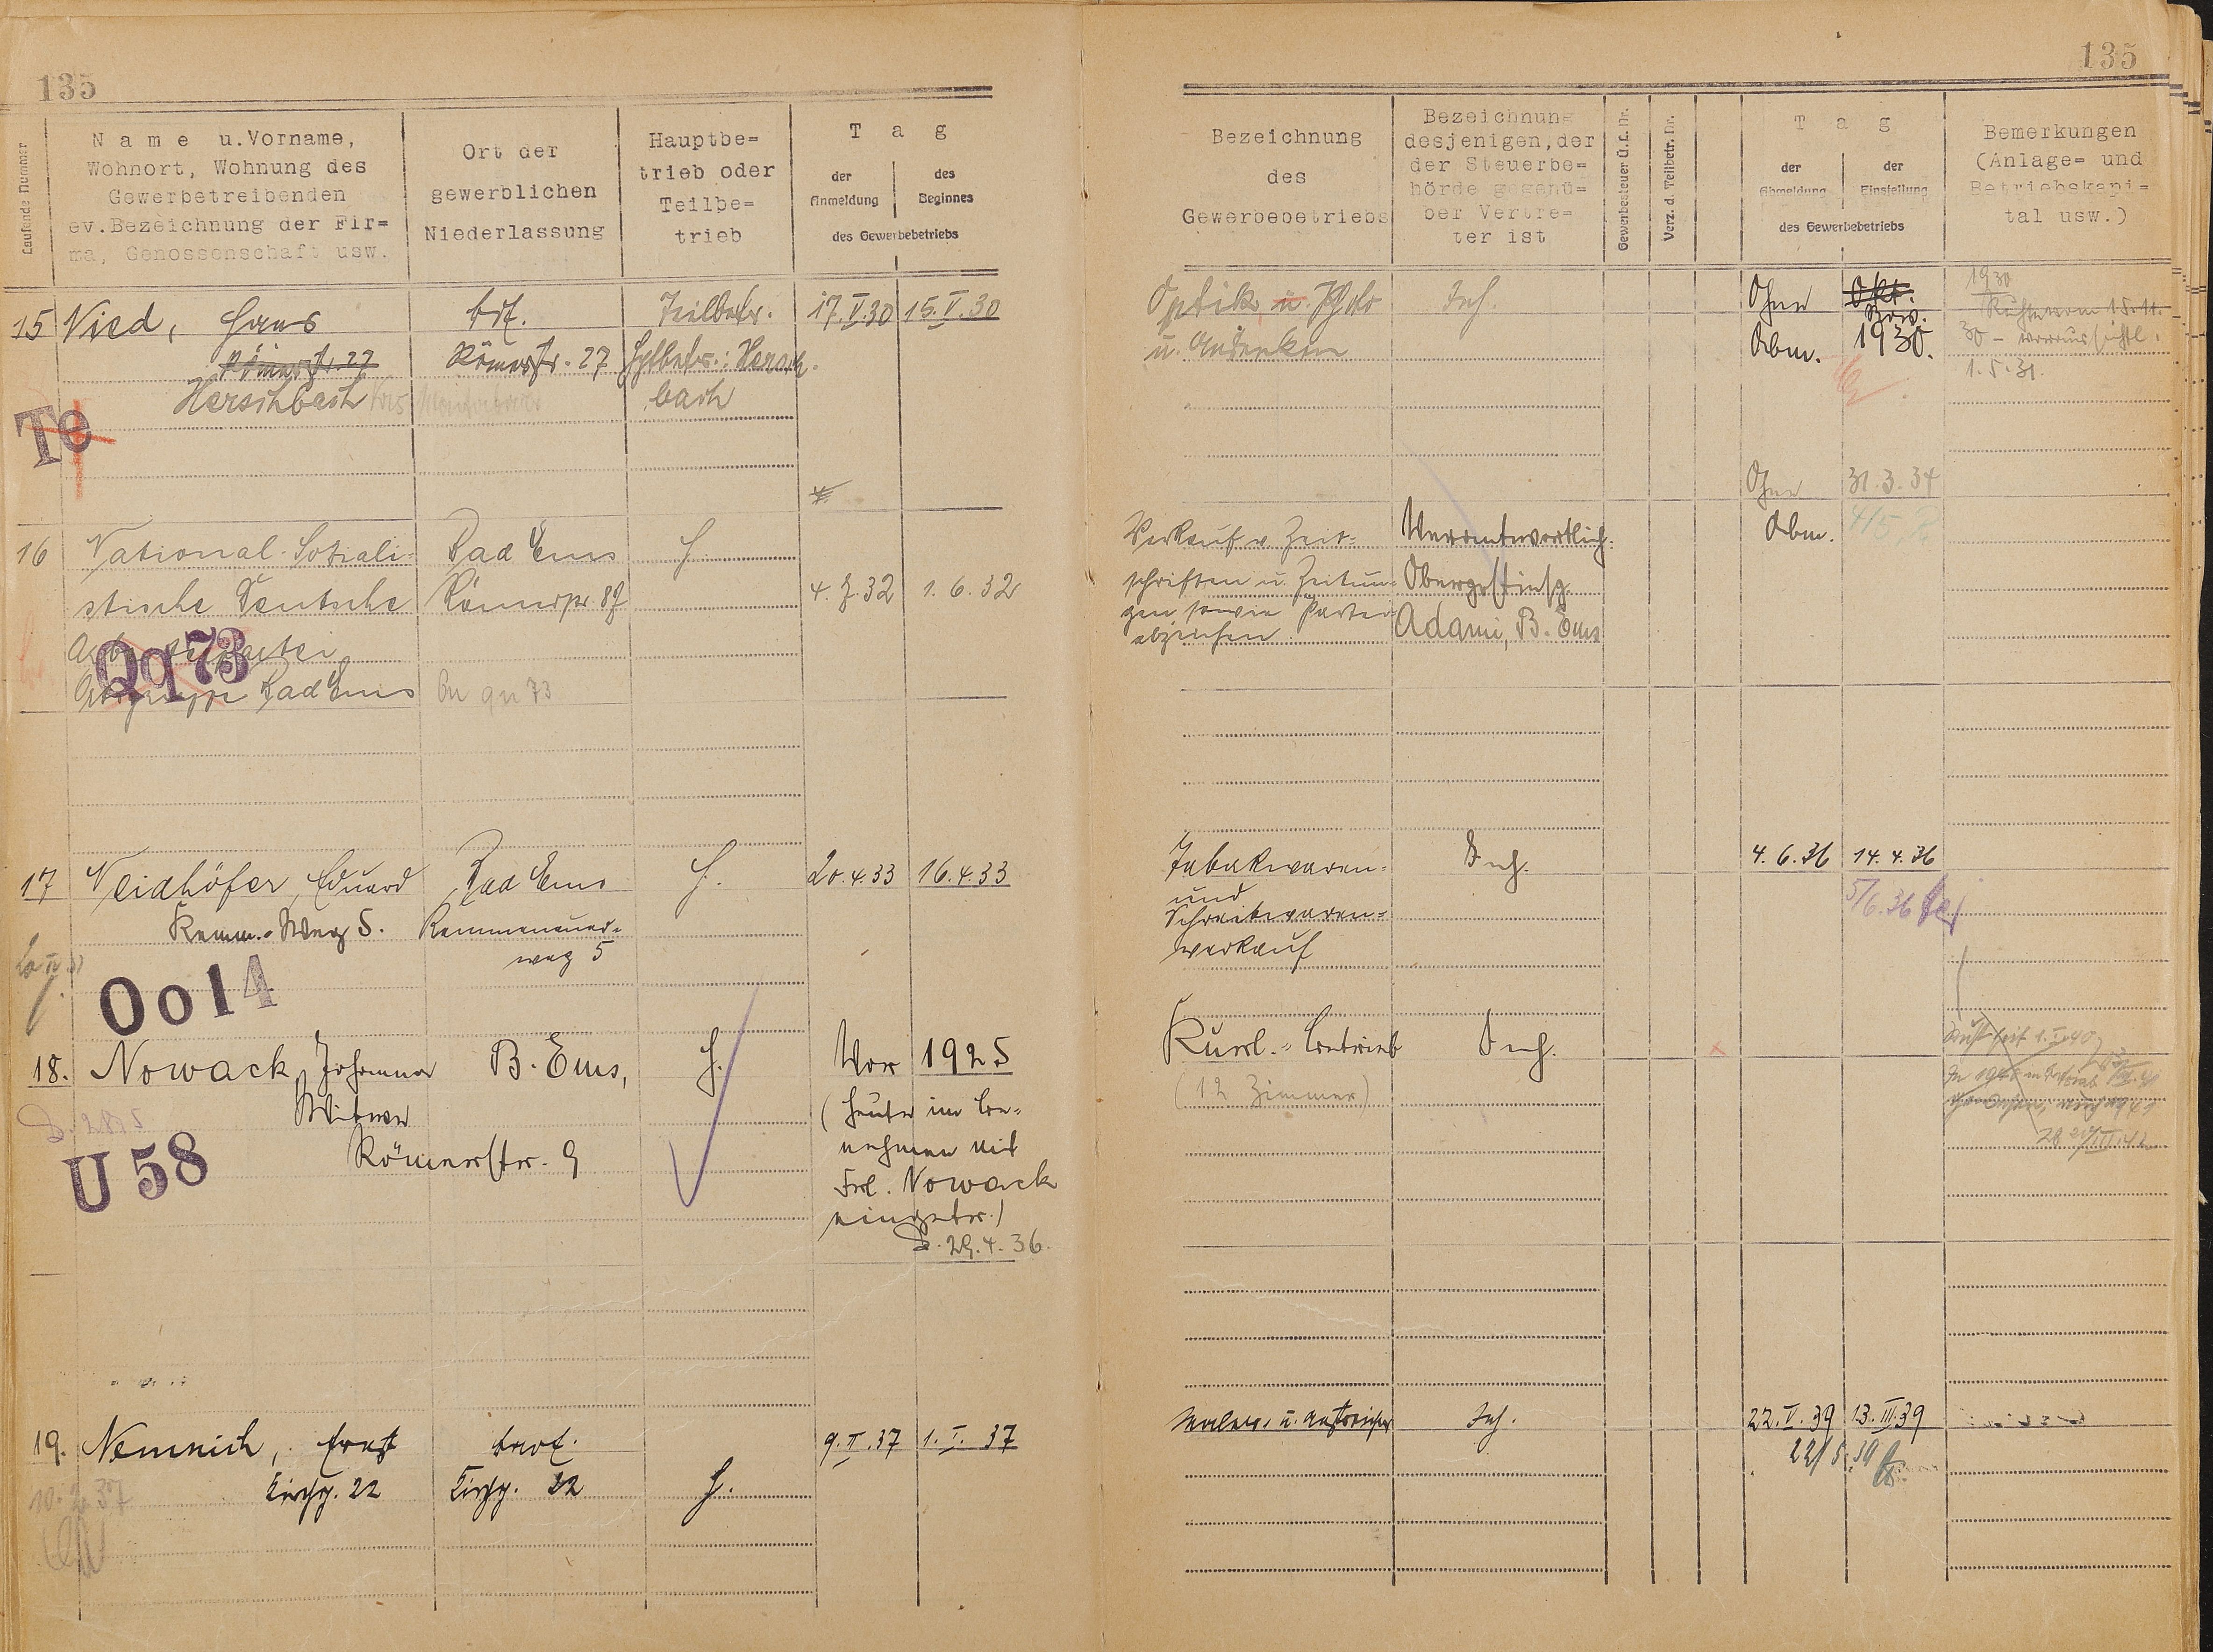 135
Laufende Nummer
Name u.Vorname,
Wohnort, Wohnung des
Gewerbetreibenden
ev.Bezeichnung der Fir=
ma, Genossenschaft usw.
Ort der
gewerblichen
Niederlassung
Hauptbe=
trieb oder
Teilbe=
trieb
Tag
der
Anmeldung
des
Beginnes
des Gewerbebetriebs
15 Nied, Hans
Römerstr. 27
Herschbach
Te
Römerstr. 27
Teilbetr.
Hptbetr.: Hersch
bach
17.V.30 15.V.30
16 National-Soziali=
stische Deutsche
Ortsgruppe Bad Ems
Qq 73
Bad Ems
Römerstr. 87
H
4.7.32 1.6.32
17 Neidhöfer, Eduard
Kemm.-Weg 5.
Oo14
Bad Ems
Kemmenauer=
weg 5
H.
20.4.33 16.4.33
18. Nowack, Johanna
Witwe
Römerstr. 9
U 58
B. Ems,
H.
Vor 1925
(heute im Be=
nehmen mit
Frl. Nowack
eingetr.)
29.4.36.
19. Nemnich, Ernst
Kirchg. 22
10.2.37
Kirchg. 22
H.
9.II.37 1.I.37
135
Bezeichnung
des
Gewerbebetriebs
Bezeichnung
desjenigen, der
der Steuerbe=
hörde gegenü=
ber Vertre=
ter ist
Gewerbesteuer Ü.L. Nr.
Verz. d. Teilbetr. Nr.
Tag
der
Abmeldung
der
Einstellung
des Gewerbebetriebs
Bemerkungen
(Anlage= und
Betriebskapi=
tal usw.)
Optik u. Photo
u. Andenken
Inh.
Ohne
Abm.
Okt.
Nov.
1930.
1930
1.5.31.
Verkauf v. Zeit=
schriften u. Zeitun=
gen sowie Partei=
abzeichen
Verantwortlich:
Adami, B. Ems
Ohne
Abm.
31.3.34
Tabakwaren=
und
Schreibwaren=
verkauf
Inh.
4.6.36 14.4.36
5/6.36
Kurl.=betrieb
(12 Zimmer)
Inh.
Maler. u. Anstreicher
Inh.
22.V.39 13.III.39
22/5.39